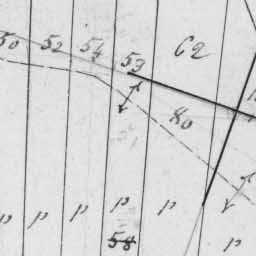 50 52 54 53 C2
80
p p p p p
58 p